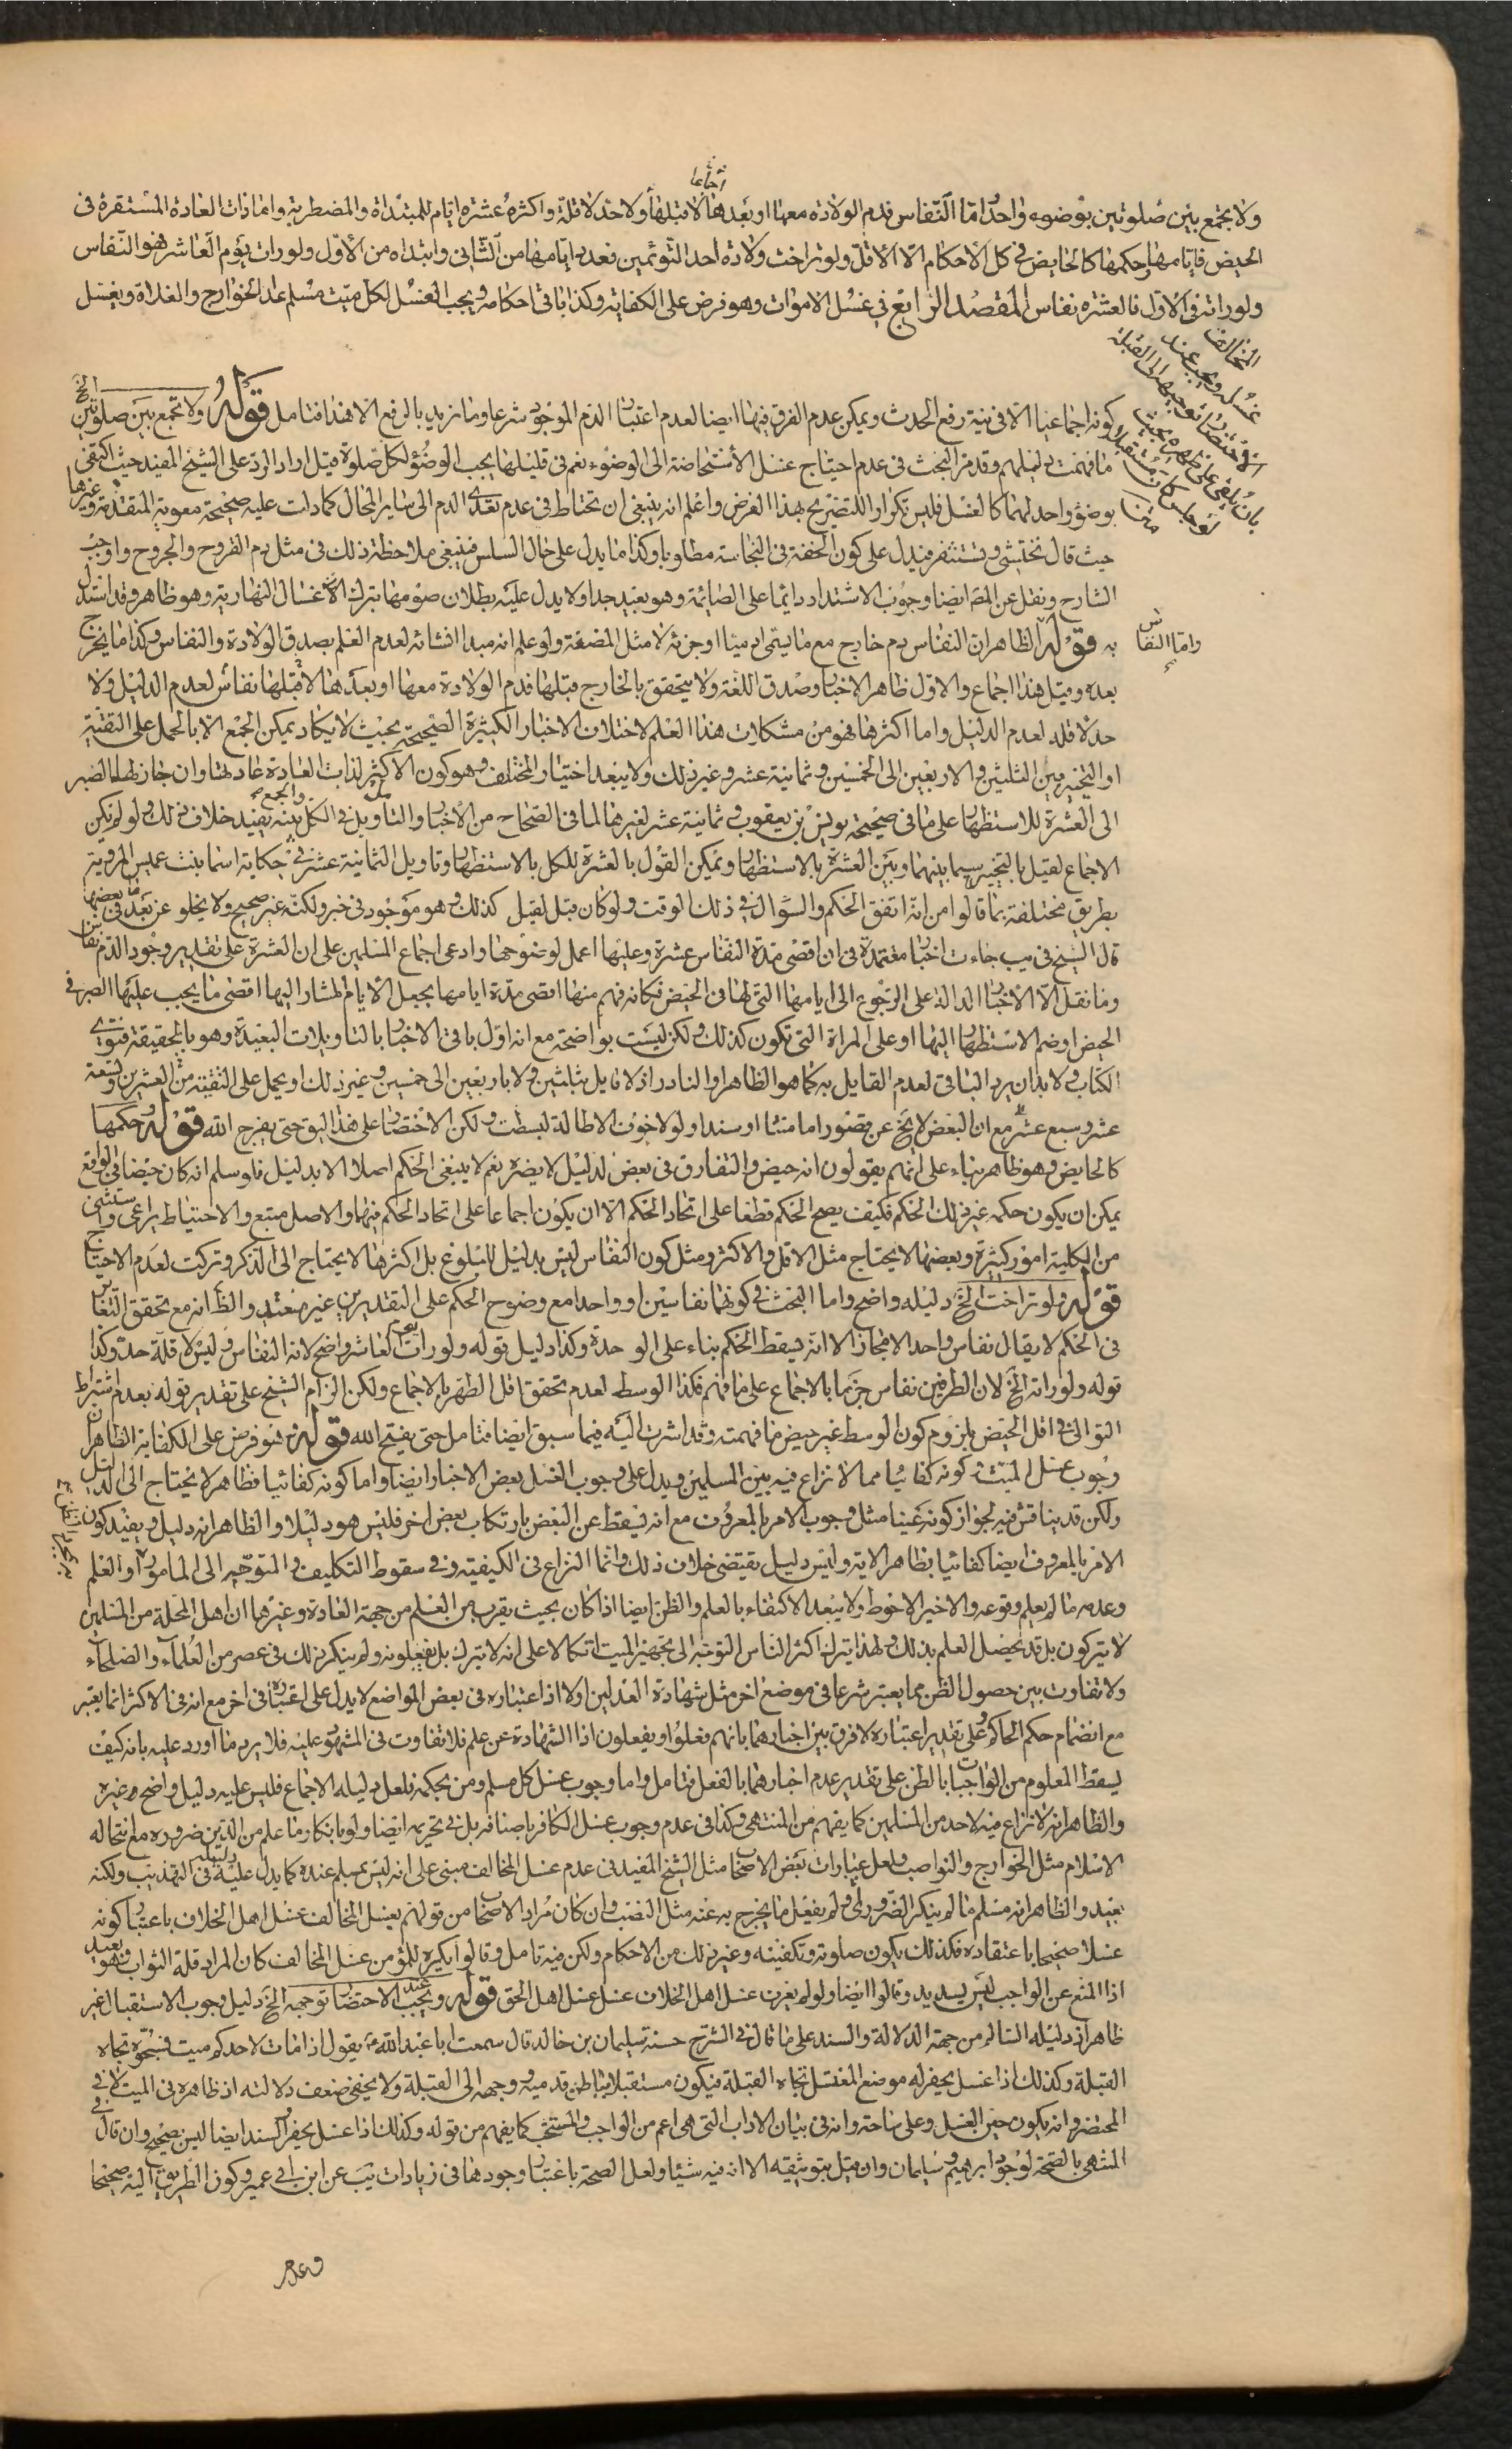 ولا يجمع بين صلوتين بوضوء واحد واما النفاس فدم الولادة معها او بعدها لا قبلها ولا حد لاقله واكثره عشرة ايام للمبتدأة والمضطربة واما ذات العادة المستقرة فى
اجماعا
الحيض فايامها وحكمها كالحايض فى كل الأحكام الا الاقل ولو تراخت ولادة احد التوئمين فعدد ايامها من الثانى وابتداه من الأول ولو رات يوم العاشر فهو النفاس
ولو راته فى الاول فالعشرة نفاس المقصد الرابع فى غسل الاموات وهو فرض على الكفاية وكذا باقى احكامه ويجب الغسل لكل ميت مسلم عدا الخوارج والغلاة ويغسل
المخالف
غسله ويجب عند
الاحتضار توجيهه الى القبلة
بان يلقى على ظهره بحيث
لو جلس كان مستقبلا
كونه اجماعيا الا فى نية رفع الحدث ويمكن عدم الفرق فيها ايضا لعدم اعتبار الدم الموجود شرعا وما نريد بالرفع الا هذا فتامل قوله ولا تجمع بين صلوتين الخ
ما فهمت دليلهم وقد مر البحث فى عدم احتياج غسل الأستحاضة الى الوضوء نعم فى قليلها يجب الوضوء لكل صلوة قيل اراد الرد على الشيخ المفيد حيث اكتفى
بوضوء واحد لهما كالغسل فليس تكرارا للتصريح بهذا الغرض واعلم انه ينبغى ان تحتاط فى عدم تعدى الدم الى ساير المحال كما دلت عليه صحيحة معوية المتقدمة وغيرها
حيث قال تحتشى وتستثفر فيدل على كون الخفة فى النجاسة مطلوبا وكذا ما يدل على حال السلس فينبغى ملاحظة ذلك فى مثل دم القروح والجروح واوجب
الشارح ونقل عن المص ايضا وجوب الاستداد دائما على الصائمة وهو بعيد جدا ولا يدل عليه بطلان صومها بترك الاغسال النهارية وهو ظاهر وقد استدل
به قوله الظاهر ان النفاس دم خارج مع ما يسمى ادميا او جزئه لا مثل المضغة ولو علم انه مبدا انشائه لعدم العلم بصدق الولادة والنفاس وكذا ما يخرج
واما النفاس
بعده وقيل هذا اجماع والاول ظاهر الاخبار وصدق اللغة ولا يتحقق بالخارج قبلها فدم الولادة معها او بعدها لا قبلها نفاس لعدم الدليل ولا
حد لاقله لعدم الدليل واما اكثرها فهو من مشكلات هذا العلم لاختلاف الاخبار الكثيرة الصحيحة بحيث لا يكاد يمكن الجمع الا بالحمل على التقية
او التخيير بين الثلثين والاربعين الى الخمسين وثمانية عشر وغير ذلك ولا يبعد اختيار المختلف وهو كون الاكثر لذات العادة عادتها وان جاز لها الصبر
الى العشرة للاستظهار على ما فى صحيحة يونس بن يعقوب وثمانية عشر لغيرها لما فى الصحاح من الأخبار والتاويل فى الكل بينه يفيد خلاف ذلك ولو لم يكن
الاجماع لقيل بالتخيير سيما بينهما وبين العشرة بالاستظهار ويمكن القول بالعشرة للكل بالاستظهار وتاويل الثمانية عشر فى حكاية اسما بنت عميس المروية
بطريق مختلفة بما قالوا من انه اتفق الحكم والسؤال فى ذلك الوقت ولو كان قبل لقيل كذلك وهو موجود فى خبر ولكنه غير صحيح ولا يخلو عن بعد فى بعضها
قال الشيخ فى يب جاءت اخبار معتمدة فى ان اقصى مدة النفاس عشرة وعليها اعمل لوضوحها وادعى اجماع المسلمين على ان العشرة على تقدير وجود الدم نفاس
وما نقل الا الأخبار الدالة على الرجوع الى ايامها التى لها فى الحيض فكانه فهم منها اقصى مدة ايامها بجعل الأيام المشار اليها اقصى ما يجب عليها الصبر فى
الحيض او ضم الاستظهار اليها او على المراة التى تكون كذلك ولكن ليست بواضحة مع انه اول باقى الاخبار بالتاويلات البعيدة وهو بالحقيقة فتوى
الكتاب ولا بد ان يرد الباقى لعدم القايل به كما هو الظاهر او النادر اذ لا قايل بثلثين ولا باربعين الى خمسين وغير ذلك او يحمل على التقية مثل العشرين وتسعة
عشر وسبع عشر مع ان البعض لا يخ عن قصور اما متنا او سندا ولولا خوف الاطالة لبسطت ولكن الاختصار على هذا اليق حتى يفرج الله قوله وحكمها
كالحايض وهو ظاهر بناء على انهم يقولون انه حيض والتفارق فى بعض لدليل لا يضره نعم لا ينبغى الحكم اصلا الا بدليل فلو سلم انه كان حيضا فى الواقع
يمكن ان يكون حكمه غير ذلك الحكم فكيف يصح الحكم قطعا على اتحاد الحكم الا ان يكون اجماعا على اتحاد الحكم فيها والاصل متبع والاحتياط يراعى واستثنى
من الكلية امور كثيرة وبعضها لا يحتاج مثل الاقل والاكثر ومثل كون النفاس ليس بدليل للبلوغ بل اكثرها لا يحتاج الى الذكر وتركت لعدم الاحتياج
قوله ولو تراخت الخ دليله واضح واما البحث فى كونها نفاسين او واحدا مع وضوح الحكم على التقديرين غير مفيد والظ انه مع تحقق التغاير
فى الحكم لا يقال نفاس واحد الا مجازا لا انه يسقط الحكم بناء على الوحدة وكذا دليل قوله ولو رات يوم العاشر واضح لانه النفاس وليس لاقله حد وكذا
قوله ولو راته الخ لان الطرفين نفاس جزما بالاجماع على ما فهم فكذا الوسط لعدم تحقق اقل الطهر بالاجماع ولكن الزام الشيخ على تقدير قوله بعدم اشتراط
التوالى فى اقل الحيض يلزوم كون الوسط غير حيض ما فهمته وقد اشرت اليه فيما سبق ايضا فتامل حتى يفتح الله قوله وهو فرض على الكفاية الظاهر ان
وجوب غسل الميت وكونه كفائيا مما لا نزاع فيه بين المسلمين ويدل على وجوب الغسل بعض الاخبار ايضا واما كونه كفائيا فظاهر لا يحتاج الى الدليل
ولكن قد يناقش فيه لجواز كونه عينا مثل وجوب الامر بالمعروف مع انه يسقط عن البعض بارتكاب بعض اخر فليس هو دليلا والظاهر انه دليل ويفيد كون
الامر بالمعروف ايضا كفائيا بظاهر الاية وليس دليل يقتضى خلاف ذلك وانما النزاع فى الكيفية وفى سقوط التكليف والمتوجه الى المامور او العلم
وعدمه ما لم يعلم وقوعه والاخير الاحوط ولا يبعد الاكتفاء بالعلم والظن ايضا اذا كان بحيث يقرب من العلم من جهة العادة وغيرها ان اهل المحلة من المسلمين
لا يتركون بل قد يحصل العلم بذلك ولهذا يترك اكثر الناس التوجه الى تجهيز الميت اتكالا على انه لا يترك بل يفعلونه ولم ينكر ذلك فى عصر من العلماء والصلحاء
ولا تفاوت بين حصول الظن مما يعتبر شرعا فى موضع اخر مثل شهادة العدلين اولا اذ اعتباره فى بعض المواضع لا يدل على اعتباره فى اخر مع انه فى الاكثر انما يعتبر
مع انضمام حكم الحاكم وعلى تقدير اعتباره لا فرق بين اخبارهما بانهم فعلوا ويفعلون اذ الشهادة عن علم فلا تفاوت فى المشهود عليه فلا يرد ما اورد عليه بانه كيف
يسقط المعلوم من الواجبات بالظن على تقدير عدم اخبارهما بالفعل فتامل واما وجوب غسل كل مسلم ومن بحكمه فلعل دليله الاجماع فليس عليه دليل واضح وغيره
والظاهر انه لا نزاع فيه لاحد من المسلمين كما يفهم من المنتهى وكذا فى عدم وجوب غسل الكافر باصنافه بل فى تحريمه ايضا ولو بانكار ما علم من الدين ضرورة مع انتحاله
الاسلام مثل الخوارج والنواصب ولعل عبارات بعض الاصحاب مثل الشيخ المفيد فى عدم غسل المخالف مبنى على انه ليس بمسلم عنده كما يدل عليه دليله فى التهذيب ولكنه
بعيد والظاهر انه مسلم ما لم ينكر الضرورى ولم يفعل ما يخرج به عنه مثل النصب وان كان مراد الاصحاب من قولهم يغسل المخالف غسل اهل الخلاف باعتبار كونه
غسلا صحيحا باعتقاده فكذلك يكون صلوته وتكفينه وغير ذلك من الاحكام ولكن فيه تامل وقالوا يكره للمؤمن غسل المخالف كان المراد قلة الثواب وهو بعيد
اذ المنع عن الواجب ليس بسديد وقالوا ايضا ولو لم يعرف غسل اهل الخلاف غسل غسل اهل الحق قوله ويجب عند الاحتضار توجيهه الخ دليل وجوب الاستقبال غير
ظاهر اذ دليله السالم من جهة الدلالة والسند على ما قال فى الشرح حسنة سليمان بن خالد قال سمعت ابا عبد الله ع يقول اذا مات لاحدكم ميت فسجوه تجاه
القبلة وكذلك اذا غسل يحفر له موضع المغتسل تجاه القبلة فيكون مستقبلا بباطن قدميه ووجهه الى القبلة ولا يخفى ضعف دلالته اذ ظاهره فى الميت لا فى
المحتضر وانه يكون حين الغسل وعلى ساحته وانه فى بيان الاداب التى هى اعم من الواجب والمستحب كما يفهم من قوله وكذلك اذا غسل يحفر والسند ايضا ليس بصحيح وان قال فى
المنتهى بالصحة لوجود ابرهيم وسليمان وان قيل بتوثيقه الا انه فيه شيئا ولعل الصحة باعتبار وجودها فى زيادات يب عن ابن ابى عمير وكون الطريق اليه صحيحا